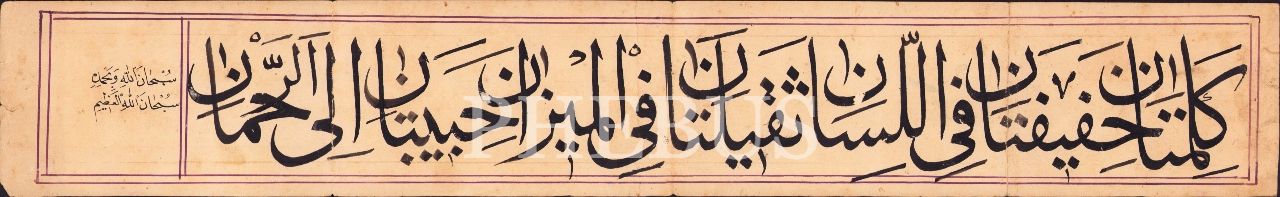 كَلِمَتَانِ خَفِيفَتَانِ فِى اللِّسِانِ ثَقِيلَتَانِ فِى الْمِيزَانِ حَبِيبَتَانِ اِلَى الرَّحْمَانِ
سُبْحَانَ اللهِ وَبِحَمْدِهِ
سُبْحَانَ اللهِ الْعَظِيم
PHEBUS